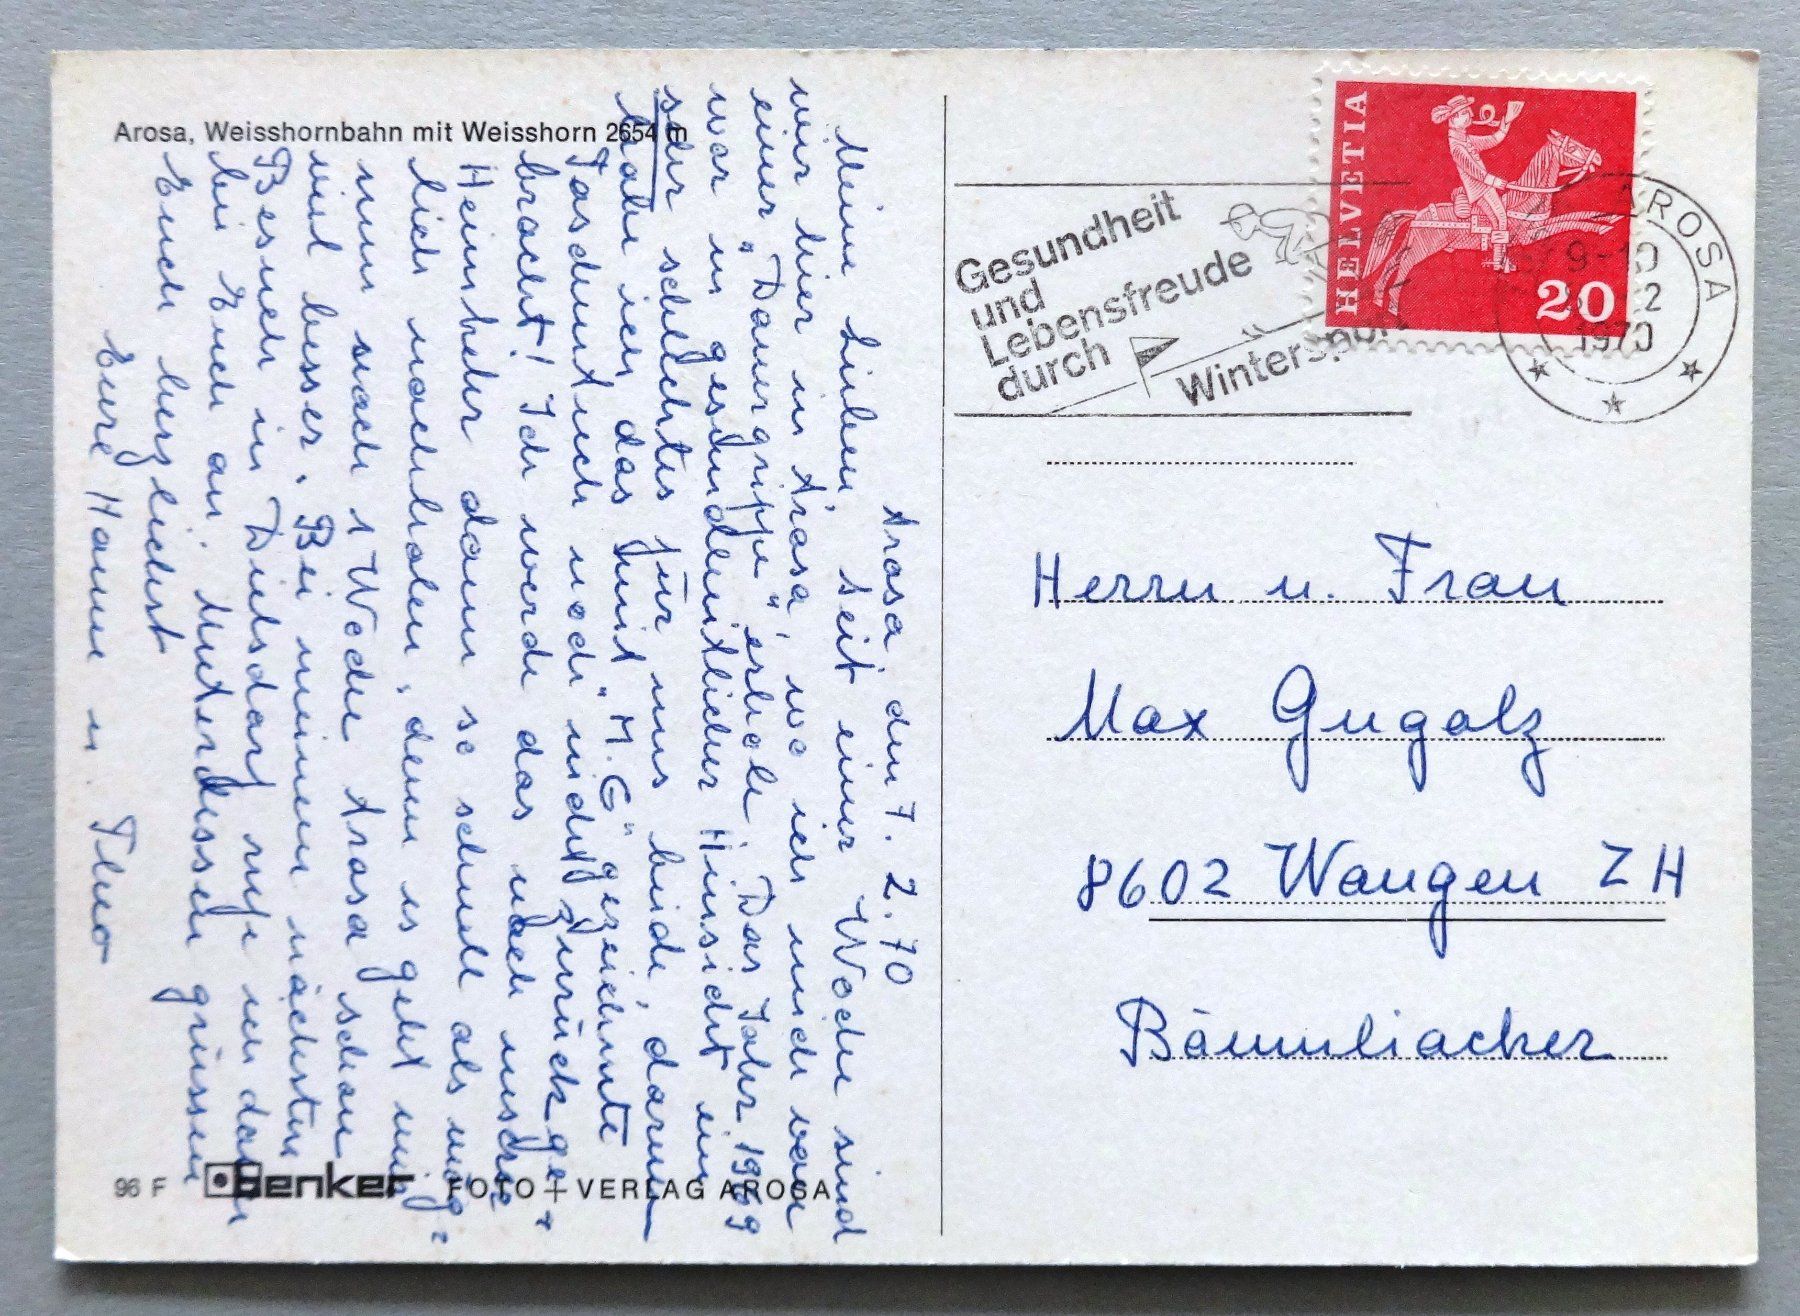 Arosa, Weisshornbahn mit Weisshorn 2654 m
Arosa, den 7. 2. 70
Meine Lieben, seit einer Woche sind
wir hier in Arosa, wo ich mich von
einer "Dauergrippe" erhole. Das Jahr 1969
war in gesundheitlicher Hinsicht ein
sehr schlechtes für uns beide, darum
habe ich das mit "M.G" gezeichnete
Taschentuch noch nicht zurückge=
bracht! Ich werde das nach unserer
Heimkehr dann so schnell als mög=
lich nachholen, denn es geht mir
nun nach 1 Woche Arosa schon
viel besser. Bei meinem nächsten
Besuch in Dielsdorf rufe ich dann
bei Euch an. Unterdessen grüssen
Euch herzlichst
Eure Hanni u. Theo
96 F Benker FOTO+VERLAG AROSA
Gesundheit
und
Lebensfreude
durch
Wintersport
HELVETIA
20
AROSA
9-10
2
1970
Herrn u. Frau
Max Gugolz
8602 Wangen ZH
Bäumliacker